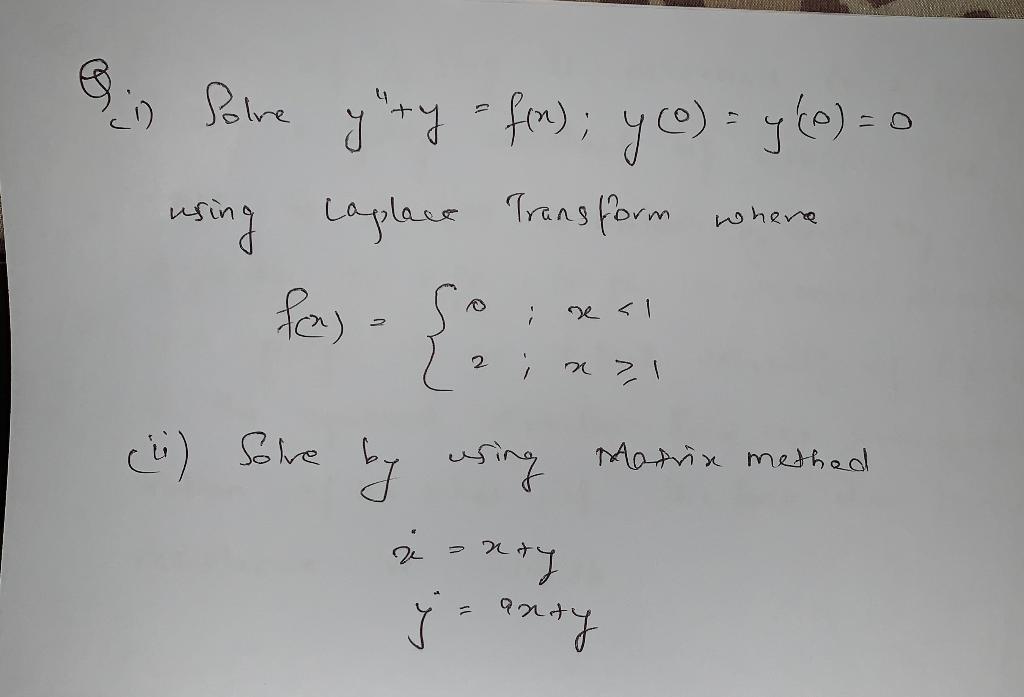 Q. (i) Solve y'' + y = f(x); y(0) = y'(0) = 0
using Laplace Transform where
f(x) = { 0 ; x < 1
2 ; x ≥ 1
(ii) Solve by using Matrix method
ẋ = x + y
ẏ = 9x + y